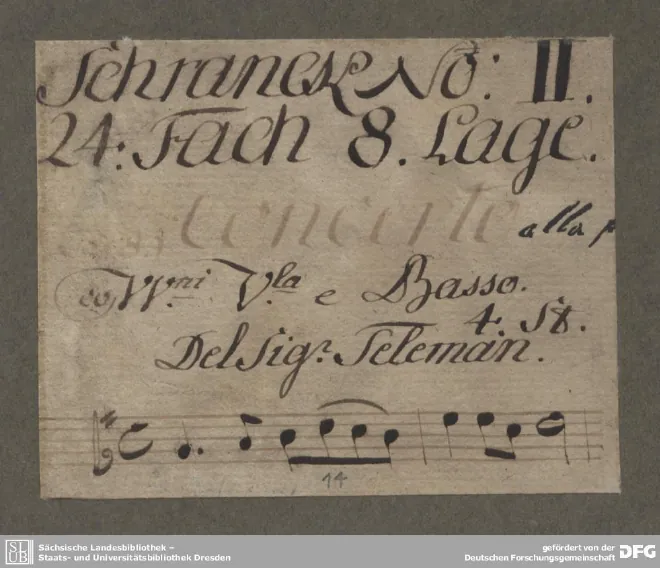 Schranck No: II.
24. Fach 8. Lage.
Concerto alla
co VV.ni V.la e Basso.
4. St.
Del Sig.r Teleman.
14
SLUB
Sächsische Landesbibliothek –
Staats- und Universitätsbibliothek Dresden
gefördert von der
Deutschen Forschungsgemeinschaft
DFG